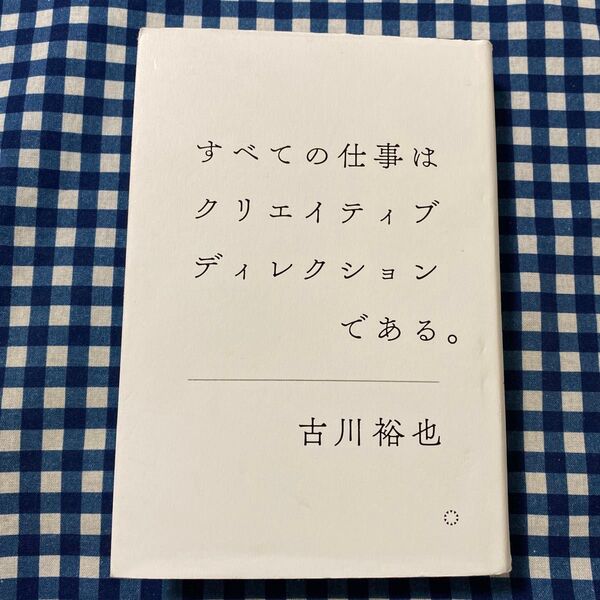 すべての仕事は
クリエイティブ
ディレクション
である。
古川裕也